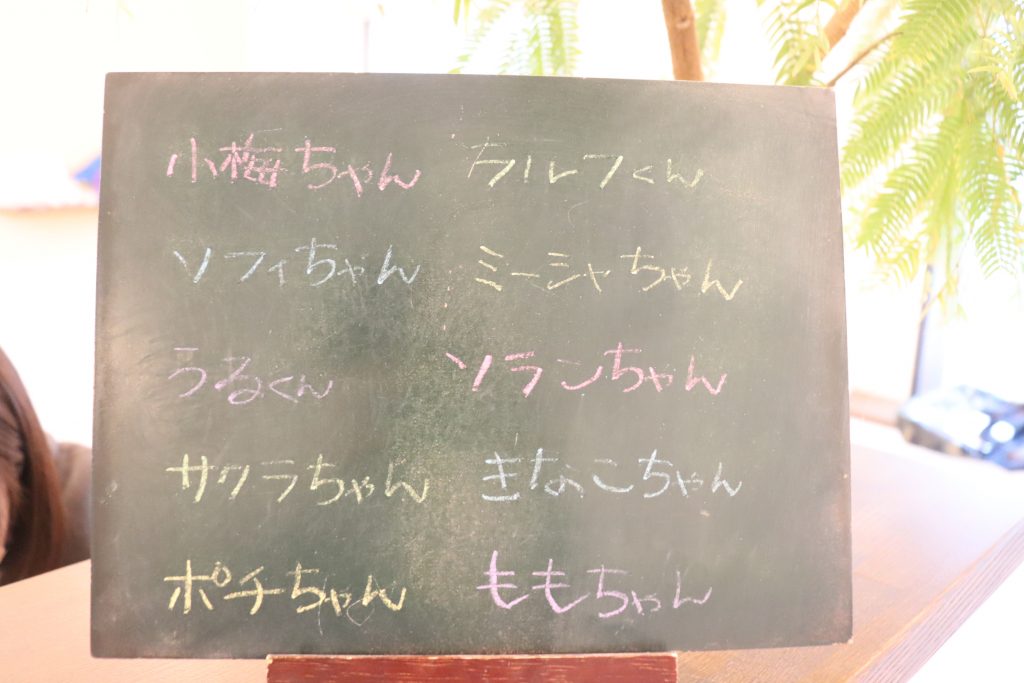 小梅ちゃん ウルフくん
ソフィちゃん ミーシャちゃん
うるくん ソランちゃん
サクラちゃん きなこちゃん
ポチちゃん ももちゃん